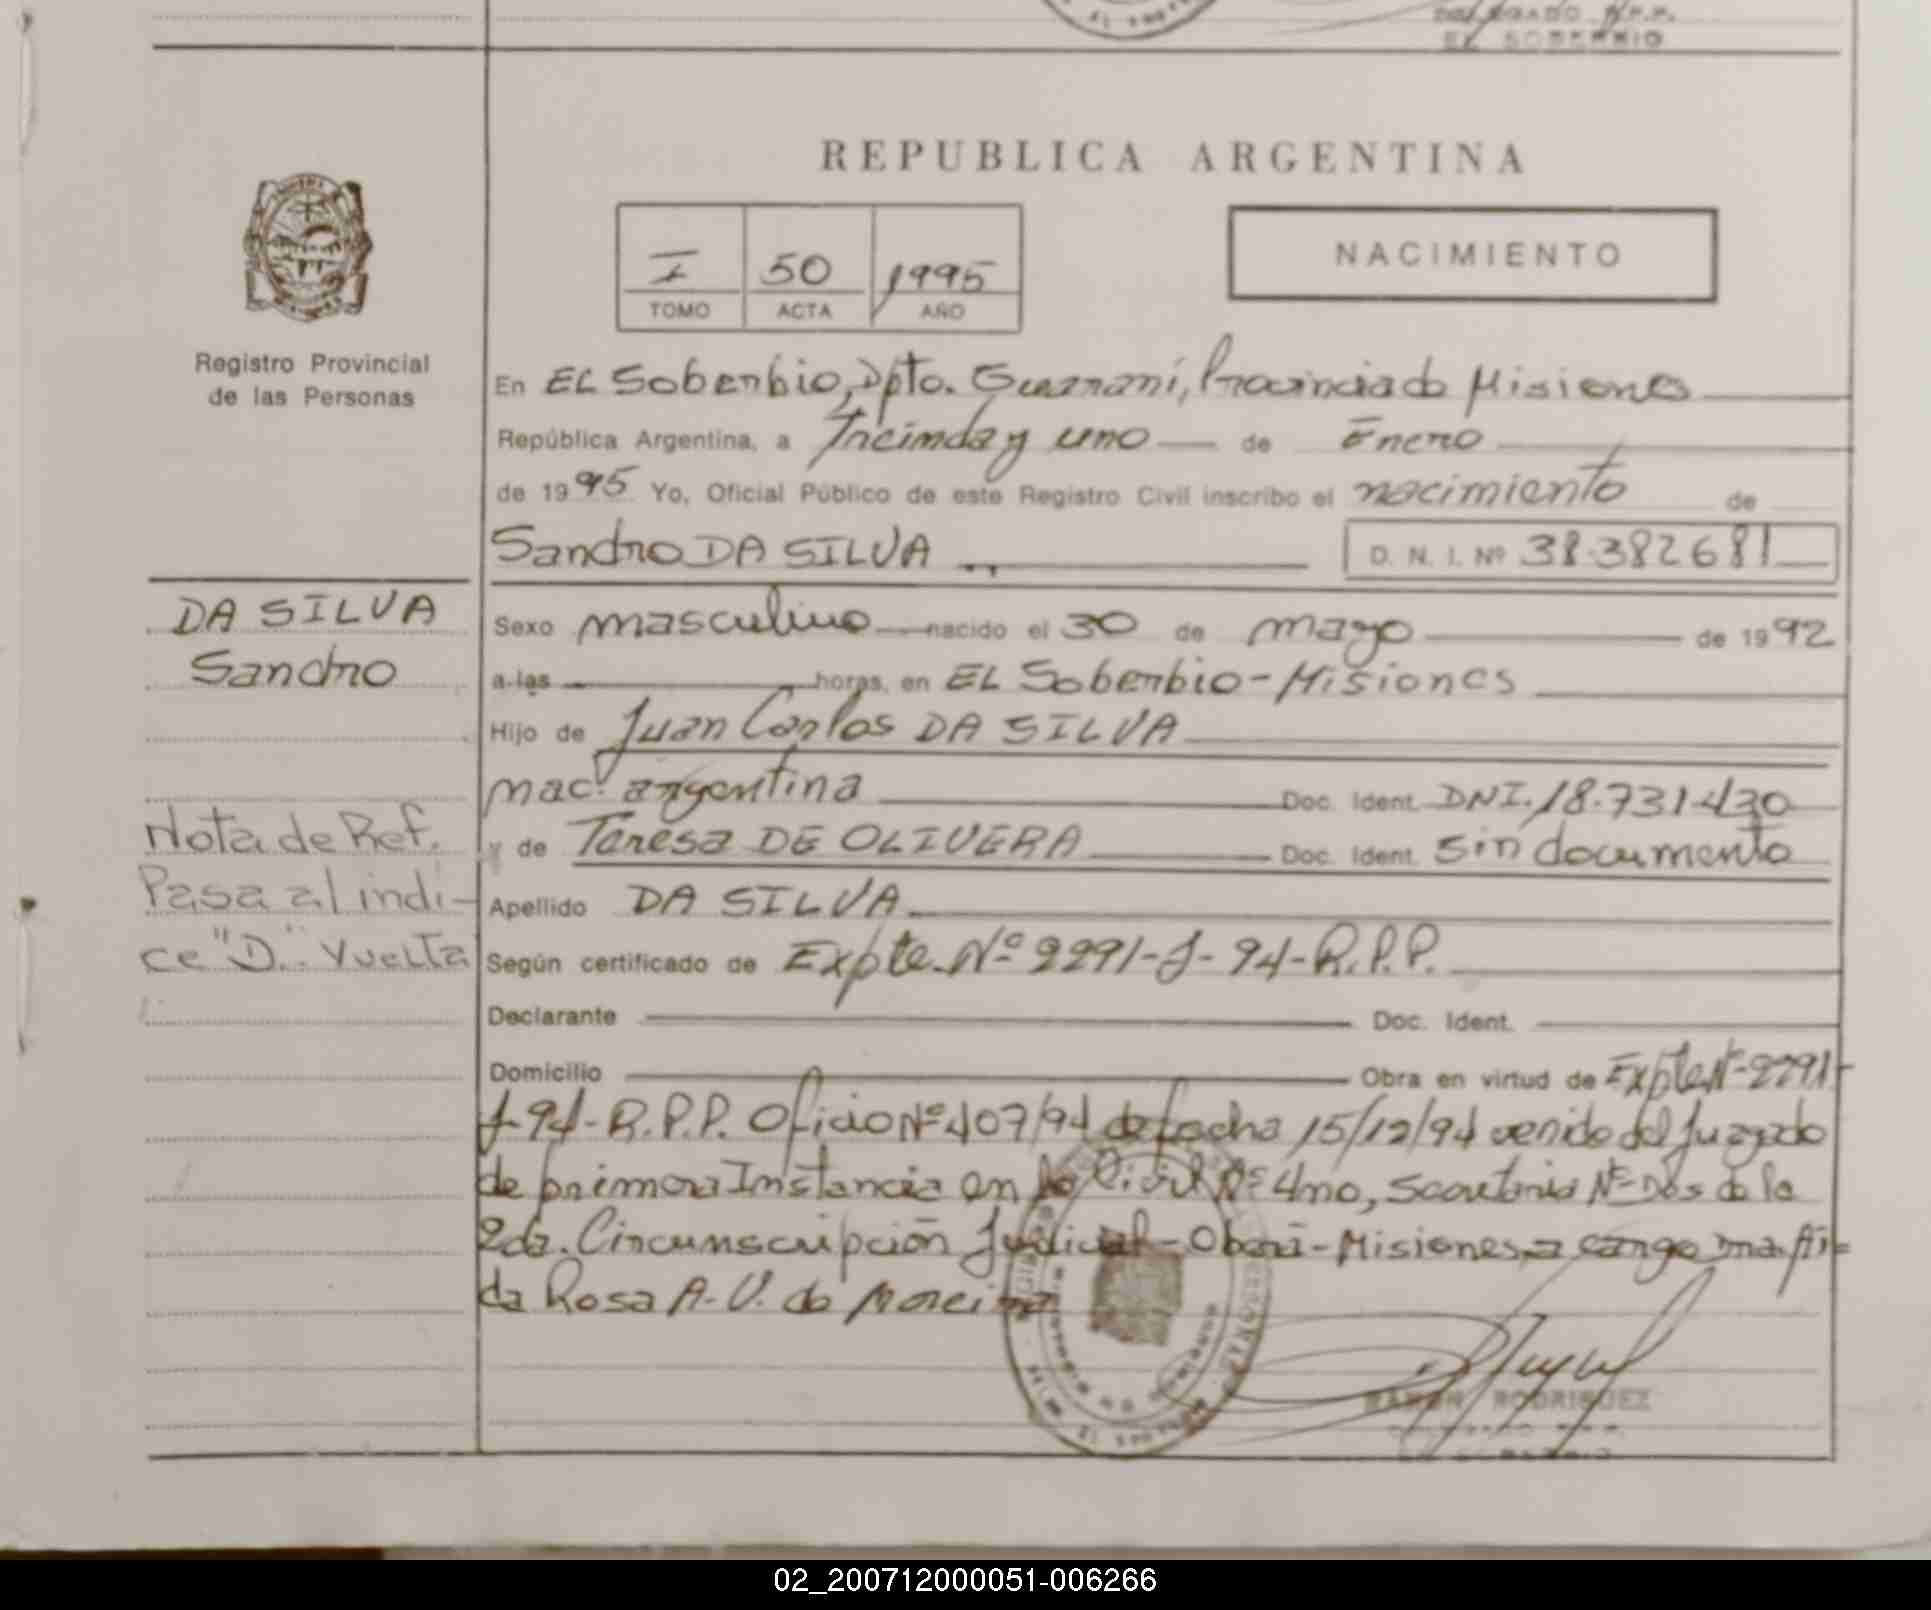 DELEGADO R.P.P.
EL SOBERBIO
REPUBLICA ARGENTINA
I 50 1995
TOMO ACTA AÑO
NACIMIENTO
Registro Provincial
de las Personas
En EL Soberbio, Dpto. Guarani, Provincia de Misiones
República Argentina, a Treinda y uno de Enero
de 1995 Yo, Oficial Público de este Registro Civil inscribo el nacimiento de
Sandro DA SILVA D. N. I. Nº 38.382681
DA SILVA
Sandro
Sexo masculino nacido el 30 de mayo de 1992
a las horas, en EL Soberbio - Misiones
Hijo de Juan Carlos DA SILVA
nac. argentina Doc. Ident. DNI. 18.731430
y de Teresa DE OLIVERA Doc. Ident. sin documento
Nota de Ref.
Pasa al indi-
ce "D". Vuelta
Apellido DA SILVA
Según certificado de Expte. Nº 2291-J-94-R.P.P.
Declarante Doc. Ident.
Domicilio Obra en virtud de Expte Nº 2291-
J-94-R.P.P. Oficio Nº 407/94 de fecha 15/12/94 venido del Juzgado
de primera Instancia en lo Civil Nº 4mo, Secretaria Nº Dos de la
2da. Circunscripción Judicial - Oberá - Misiones, a cargo
da Rosa A. V. de Moreira
RAMON RODRIGUEZ
02_200712000051-006266